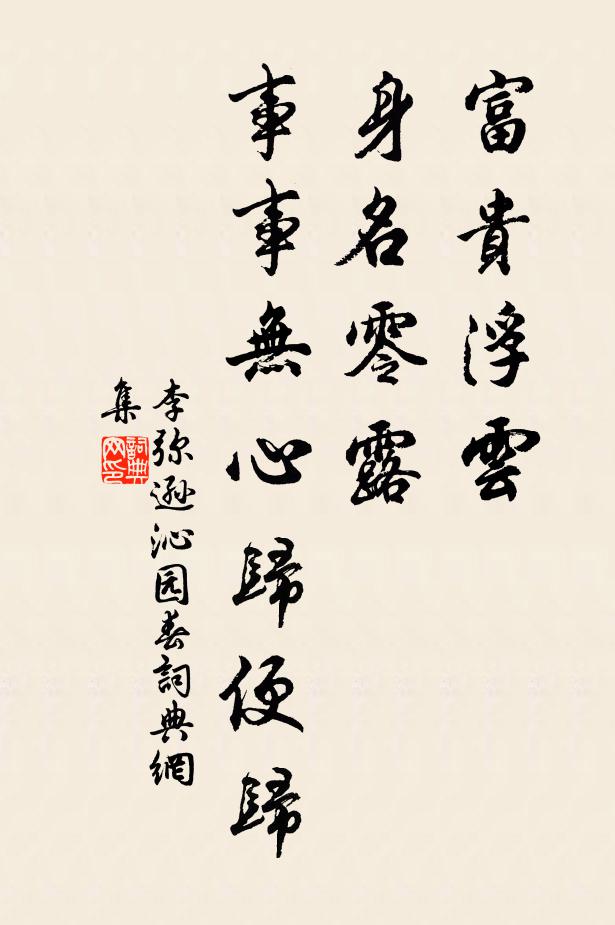 富貴浮雲
身名零露
事事無心歸便歸
李弥遜沁园春詞典網
集
詞典
网印